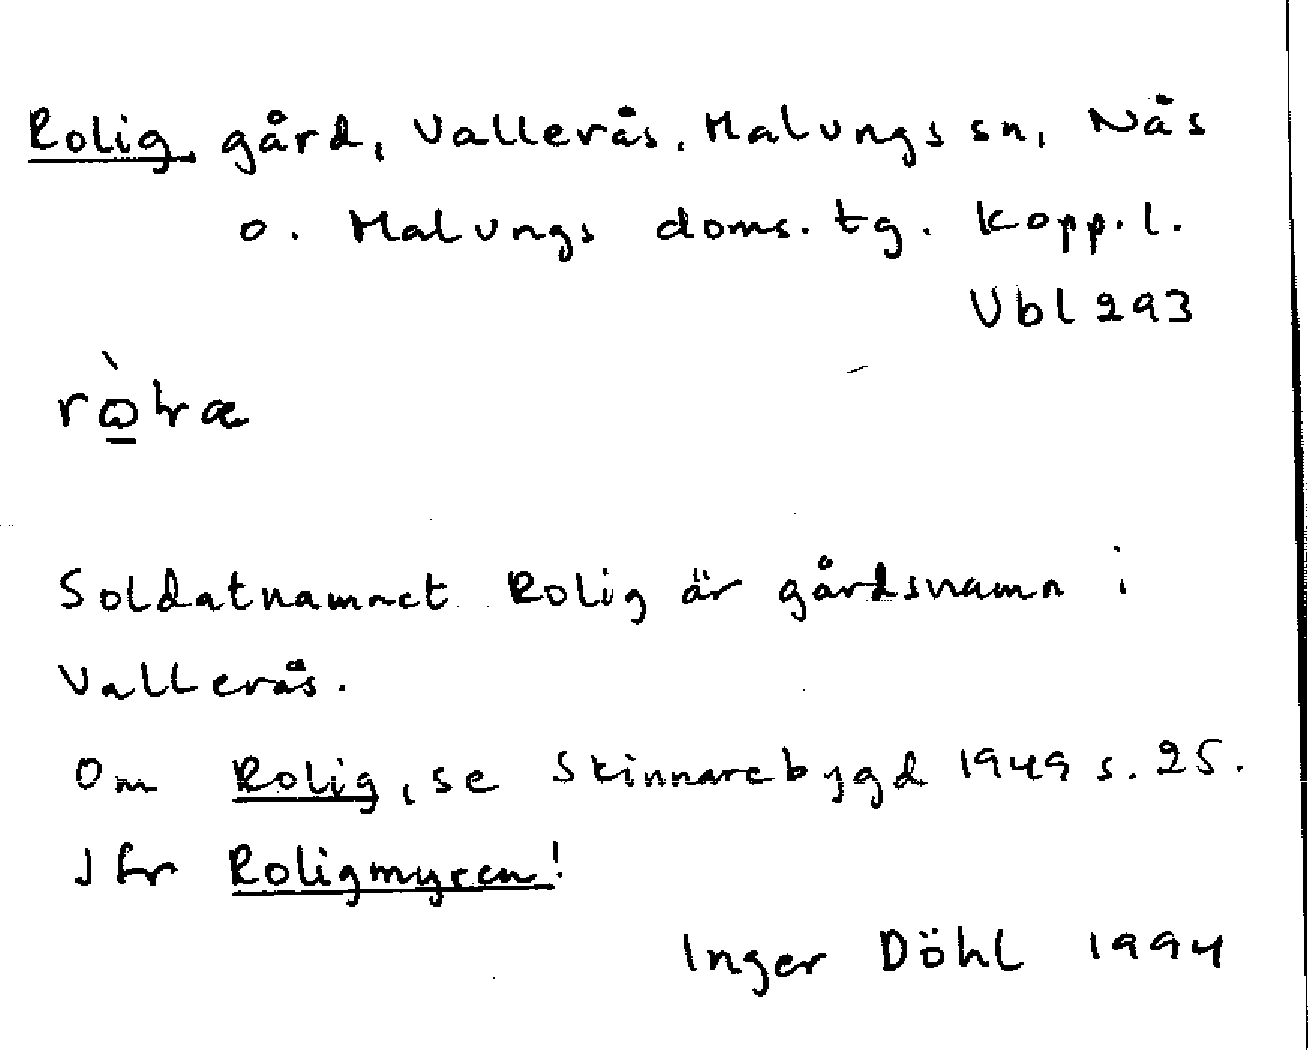 Rolig, gård, Vallerås, Malungs sn, Näs
o. Malungs doms. tg. Kopp. l.
Vbl 293
Soldatnamnet Rolig är gårdsnamn i
Vallerås.
Om Rolig, se Skinnarebygd 1949 s. 25.
Jfr Roligmyren!
Inger Döhl 1994